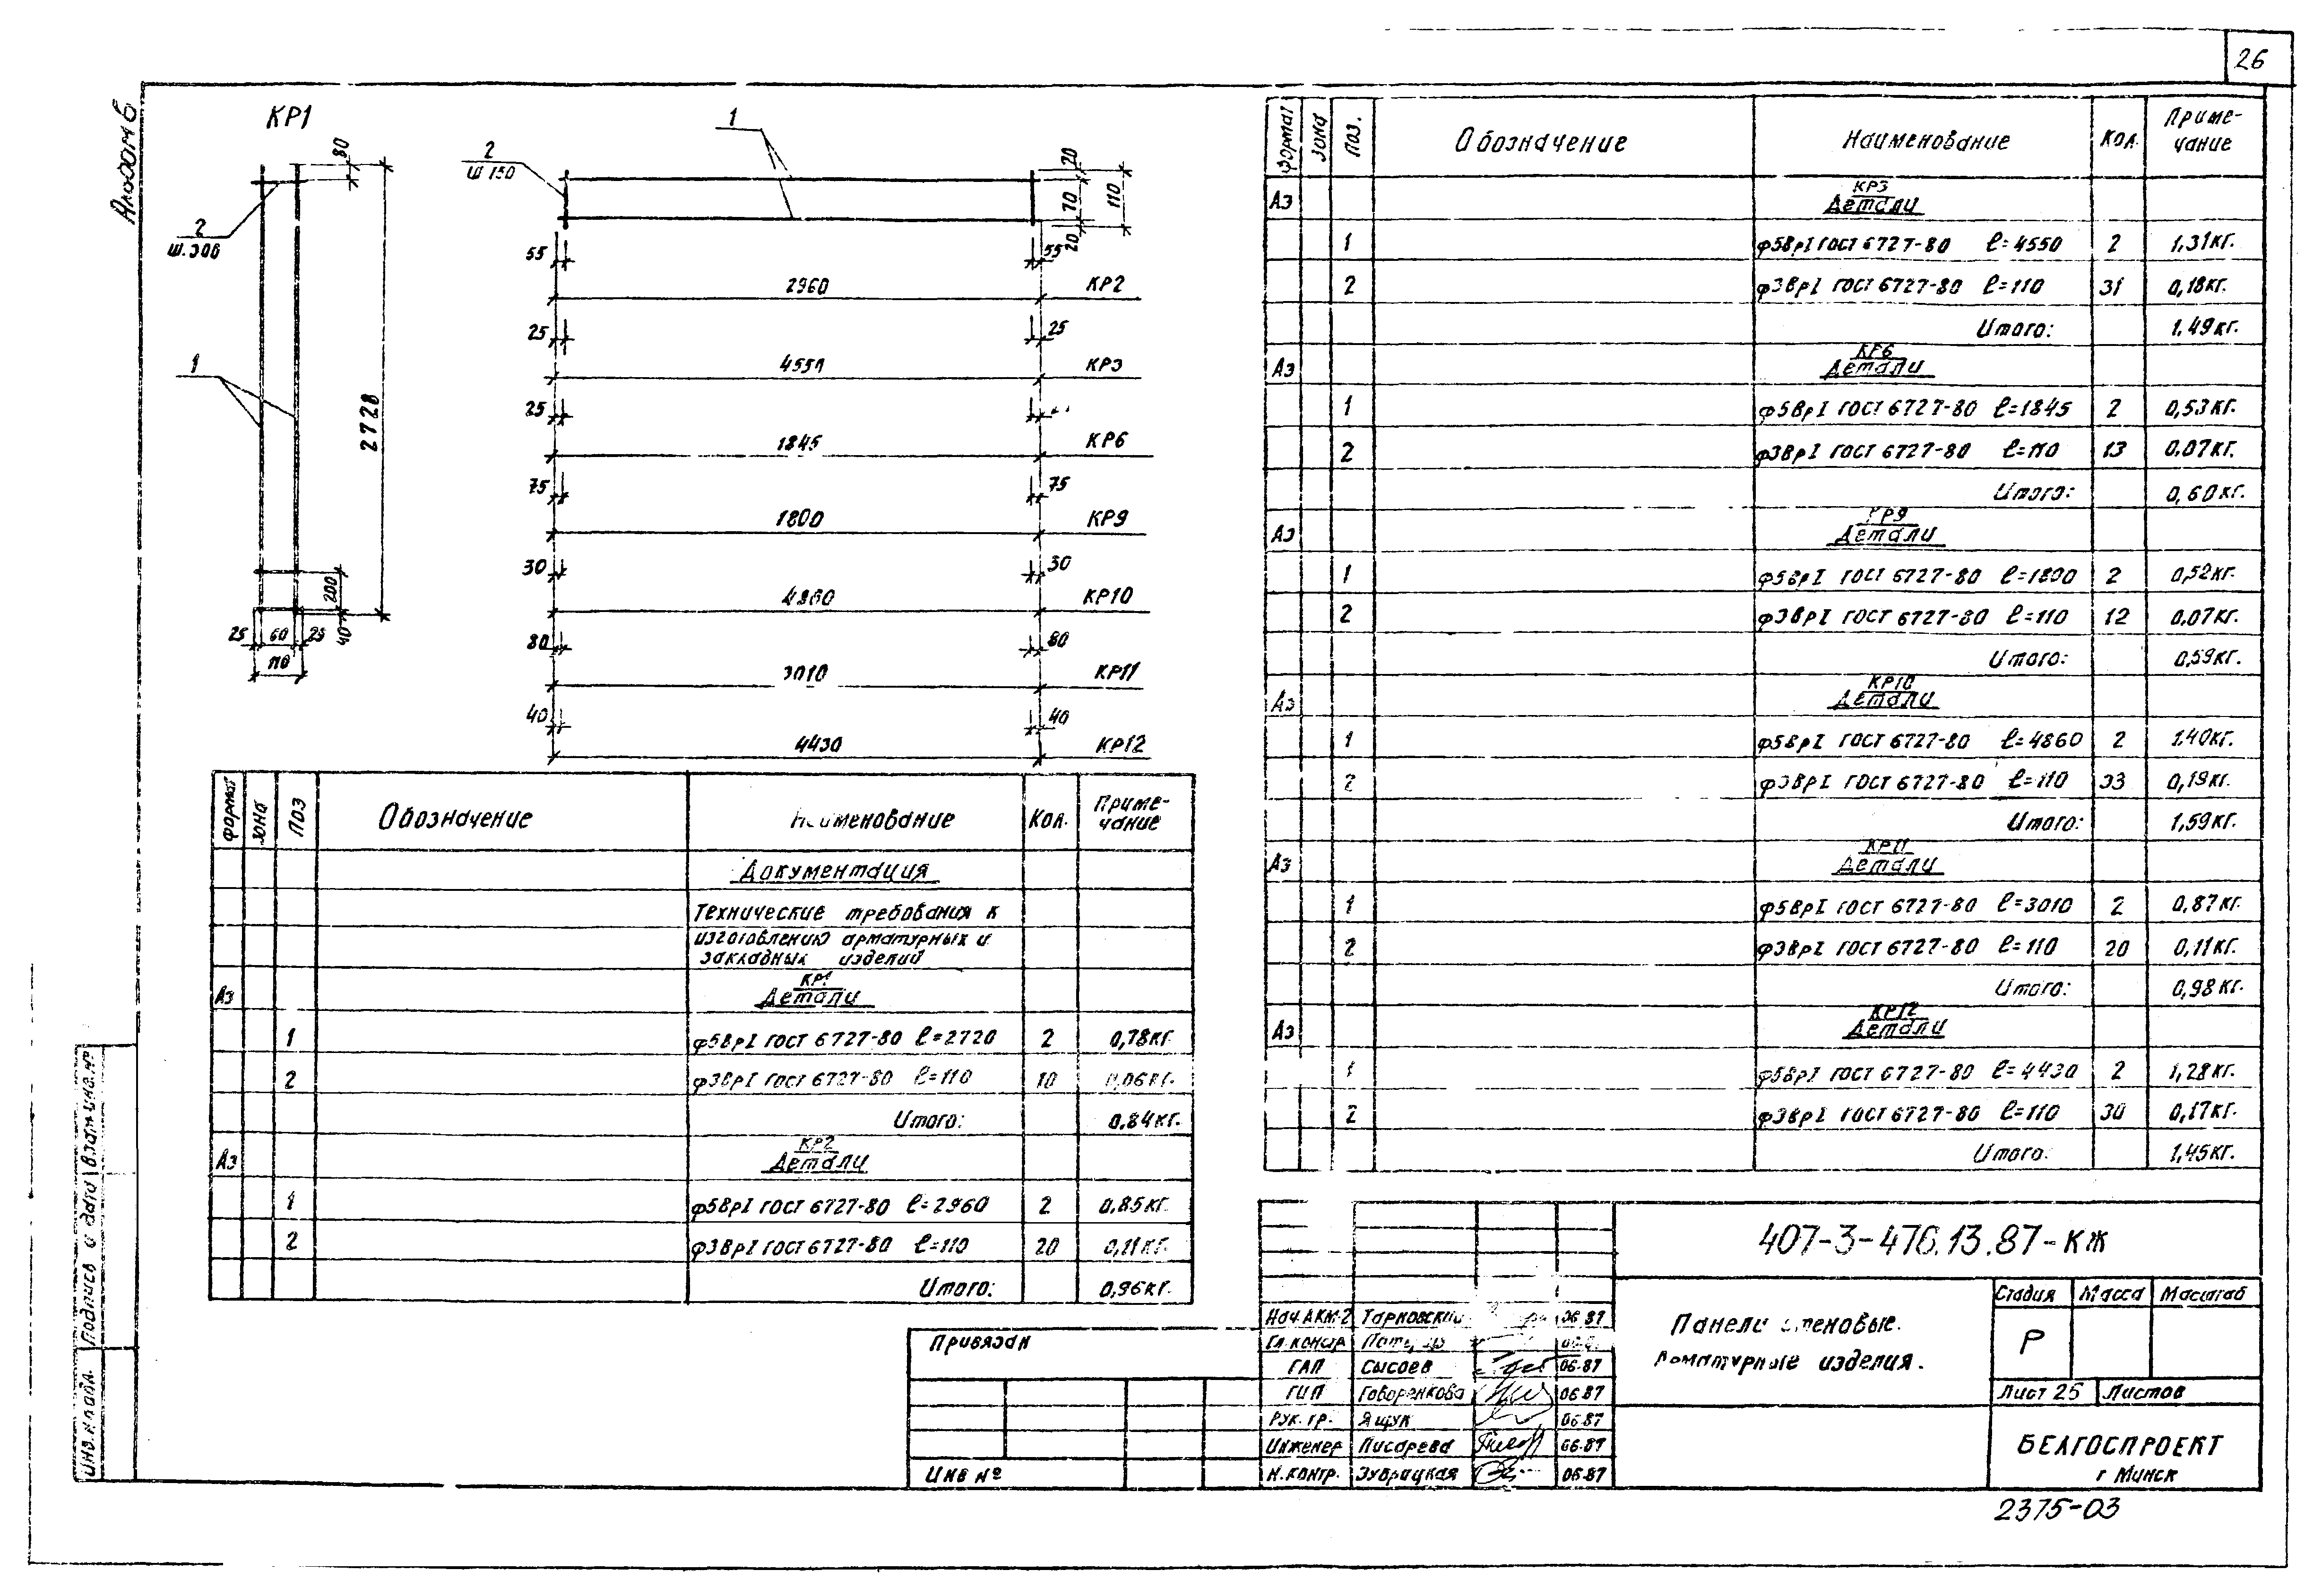 26
Альбом 6
КР1
80
2
Ш.300
1
2720
200
40
25 60 25
110
1
2
Ш 150
20
70
110
20
55 55
2960 КР2
25 25
4550 КР3
25
1845 КР6
75 75
1800 КР9
30 30
4860 КР10
80 80
3010 КР11
40 40
4430 КР12
Формат Зона Поз Обозначение Наименование Кол. Приме-
чание
Документация
Технические требования к
изготовлению арматурных и
закладных изделий
КР1
А3 Детали
1 ф5ВрI ГОСТ 6727-80 ℓ=2720 2 0,78кг.
2 ф3ВрI ГОСТ 6727-80 ℓ=110 10 0,06кг.
Итого: 0,84кг.
КР2
А3 Детали
1 ф5ВрI ГОСТ 6727-80 ℓ=2960 2 0,85кг.
2 ф3ВрI ГОСТ 6727-80 ℓ=110 20 0,11кг.
Итого: 0,96кг.
Формат Зона Поз. Обозначение Наименование Кол. Приме-
чание
КР3
А3 Детали
1 ф5ВрI ГОСТ 6727-80 ℓ=4550 2 1,31кг.
2 ф3ВрI ГОСТ 6727-80 ℓ=110 31 0,18кг.
Итого: 1,49кг.
КР6
А3 Детали
1 ф5ВрI ГОСТ 6727-80 ℓ=1845 2 0,53кг.
2 ф3ВрI ГОСТ 6727-80 ℓ=110 13 0,07кг.
Итого: 0,60кг.
КР9
А3 Детали
1 ф5ВрI ГОСТ 6727-80 ℓ=1800 2 0,52кг.
2 ф3ВрI ГОСТ 6727-80 ℓ=110 12 0,07кг.
Итого: 0,59кг.
КР10
А3 Детали
1 ф5ВрI ГОСТ 6727-80 ℓ=4860 2 1,40кг.
2 ф3ВрI ГОСТ 6727-80 ℓ=110 33 0,19кг.
Итого: 1,59кг.
КР11
А3 Детали
1 ф5ВрI ГОСТ 6727-80 ℓ=3010 2 0,87кг.
2 ф3ВрI ГОСТ 6727-80 ℓ=110 20 0,11кг.
Итого: 0,98кг.
КР12
А3 Детали
1 ф5ВрI ГОСТ 6727-80 ℓ=4430 2 1,28кг.
2 ф3ВрI ГОСТ 6727-80 ℓ=110 30 0,17кг.
Итого: 1,45кг.
Инв.№подл. Подпись и дата Взам.инв.№
Привязан
Инв №
Нач.АКМ-2 Тарковский 06.87
Гл.констр
ГАП Сысоев 06.87
ГИП Говоренкова 06.87
Рук. гр. Ящук 06.87
Инженер Писарева 06.87
Н.контр. Зубрицкая 06.87
407-3-476.13.87-КЖ
Панели стеновые.
Арматурные изделия.
Стадия Масса Масштаб
Р
Лист 25 Листов
БЕЛГОСПРОЕКТ
г Минск
2375-03